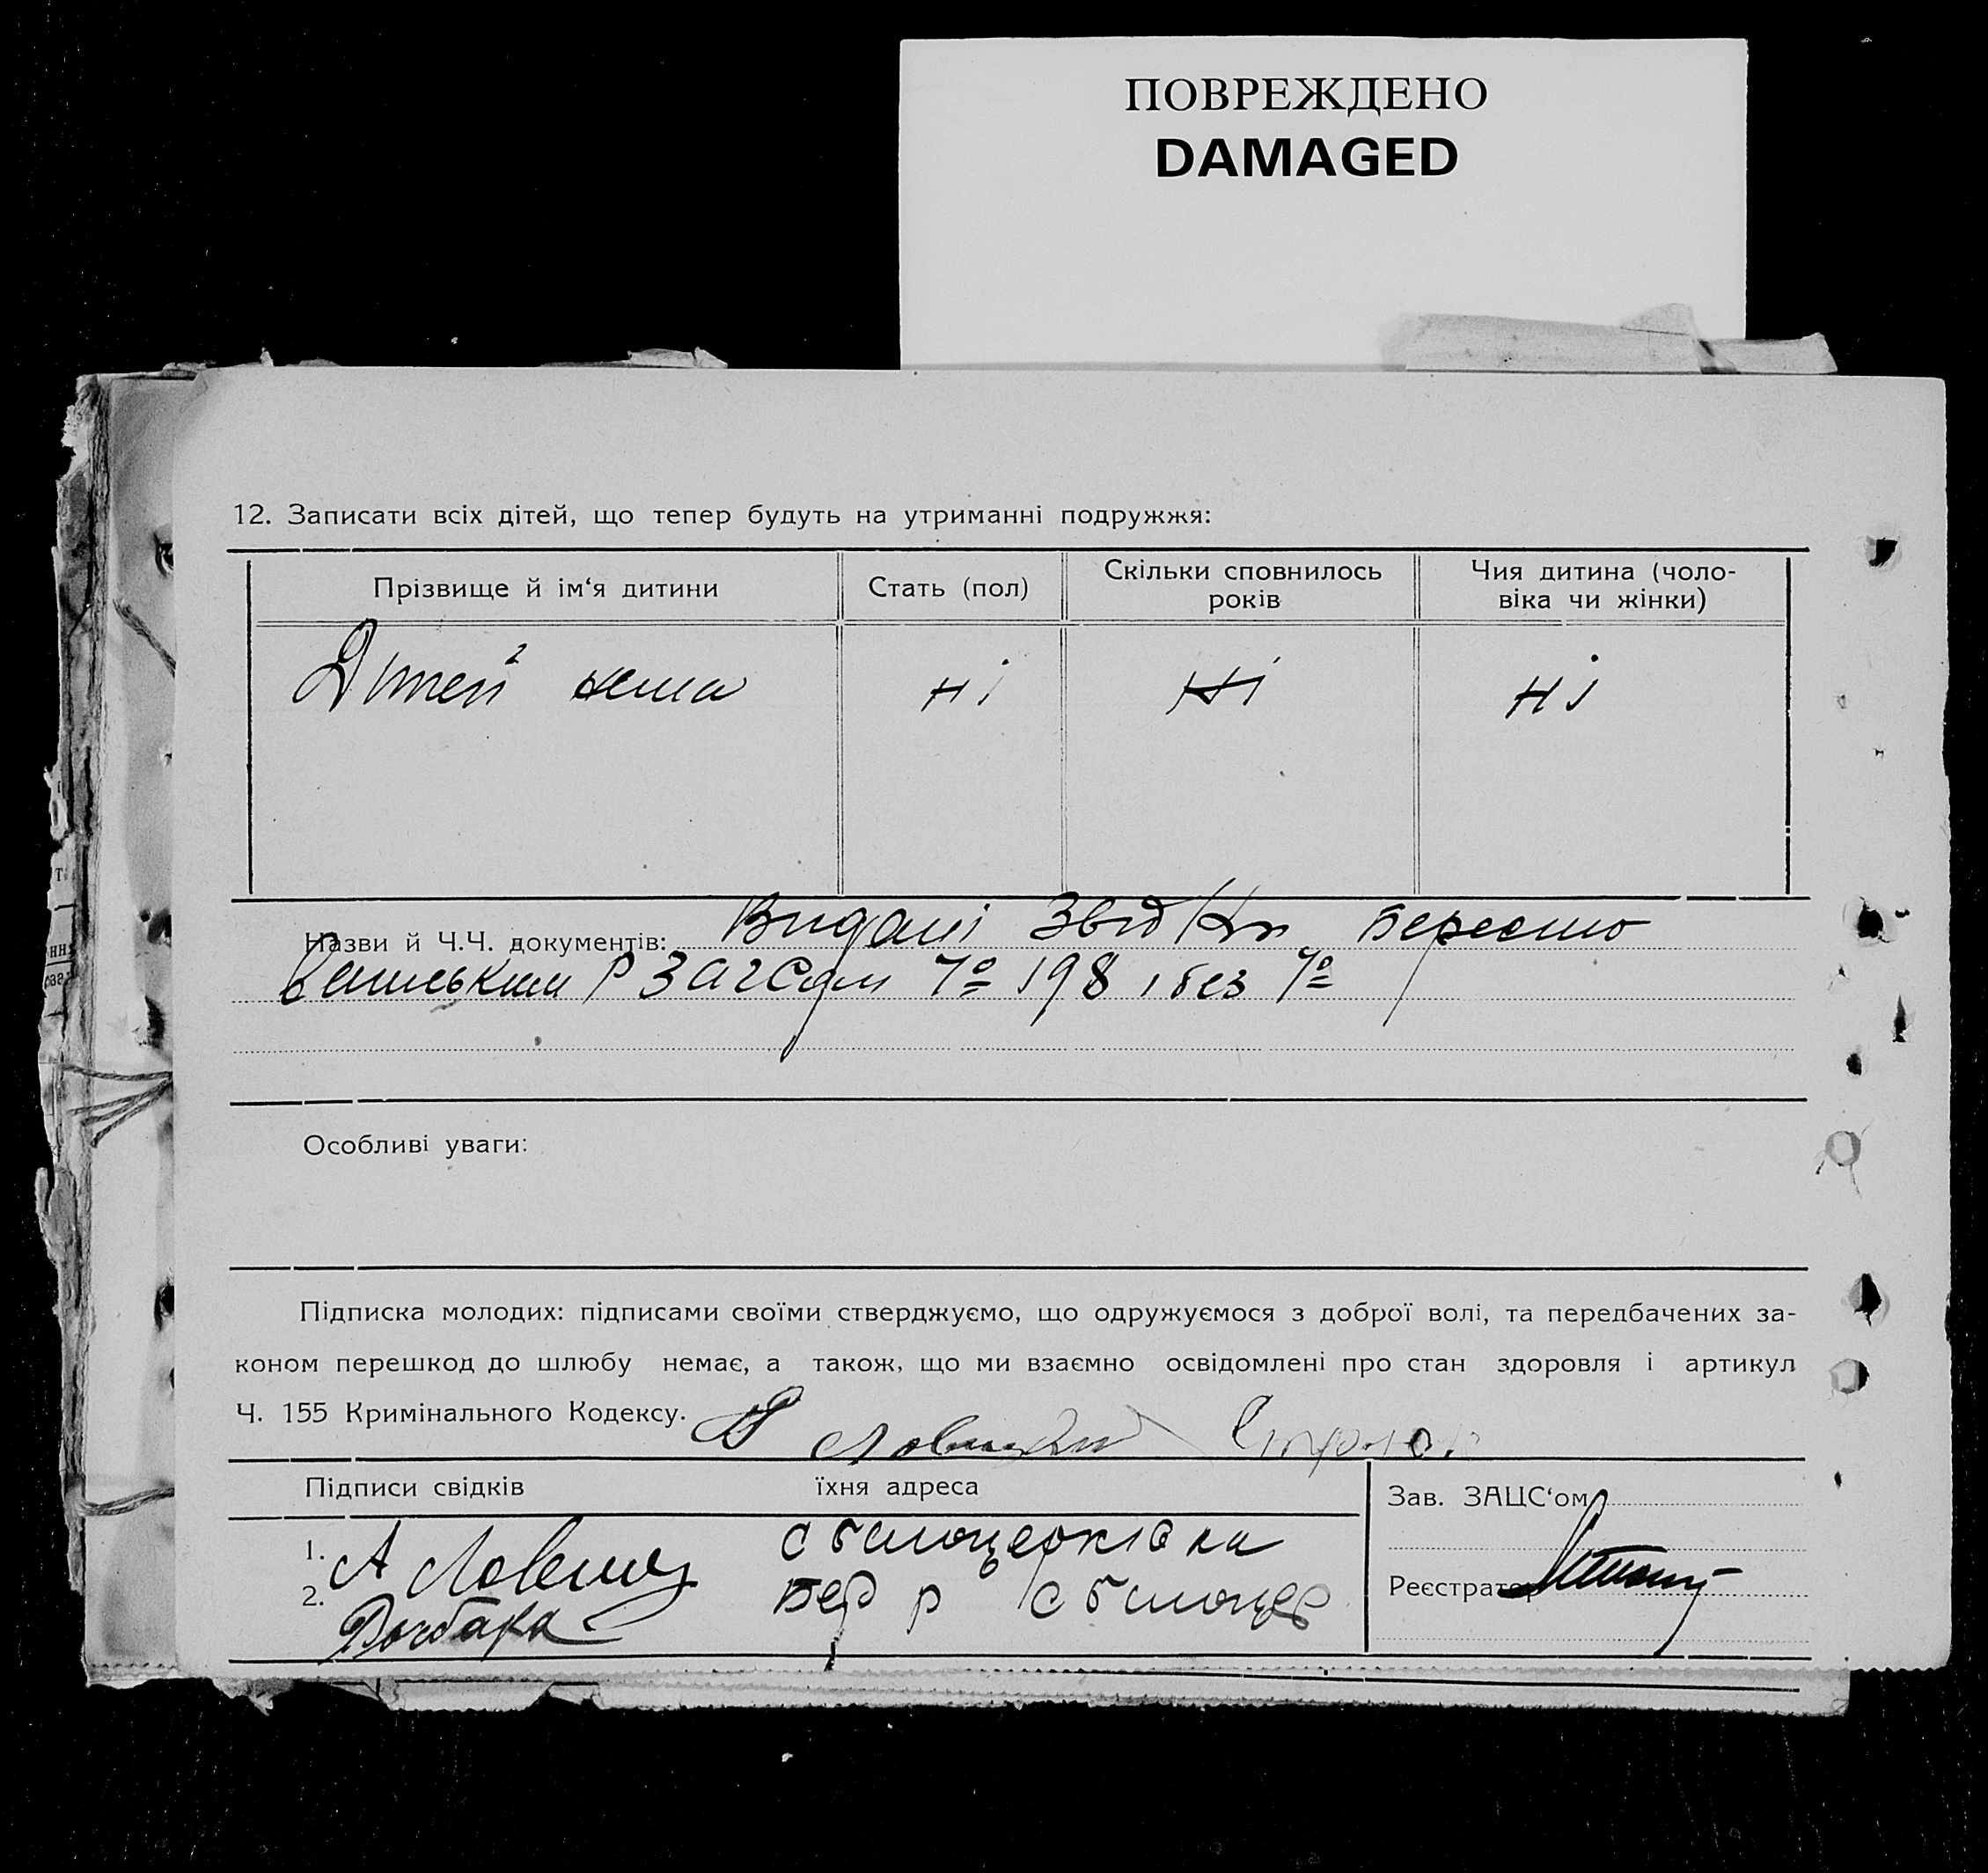 ПОВРЕЖДЕНО
DAMAGED
12. Записати всіх дітей, що тепер будуть на утриманні подружжя:
Прізвище й ім‘я дитини
Стать (пол)
Скільки сповнилось
років
Чия дитина (чоло-
віка чи жінки)
Дитей нема ні ні ні
Назви й Ч.Ч. документів: Видані Бересто
Р ЗАГСом № 198 і без №
Особливі уваги:
Підписка молодих: підписами своїми стверджуємо, що одружуємося з доброї волі, та передбачених за-
коном перешкод до шлюбу немає, а також, що ми взаємно освідомлені про стан здоровля і артикул
Ч. 155 Кримінального Кодексу.
Підписи свідків
їхня адреса
Зав. ЗАЦС‘ом
1. А с білоцерківка
2. Бер р с білоцер
Реєстратор